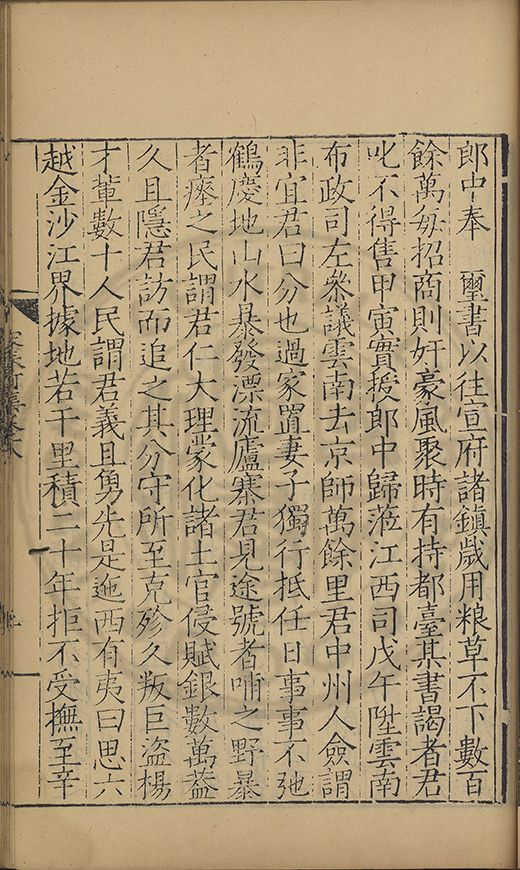 郎中奉　璽書以往宣府諸鎮歲用粮草不下數百
餘萬每招商則奸豪風聚時有持都臺某書謁者君
叱不得售甲寅實授郎中歸蒞江西司戊午陞雲南
布政司左叅議雲南去京師萬餘里君中州人僉謂
非宜君曰分也過家置妻子獨行抵任日事事不弛
鶴慶地山水暴發漂流廬寨君見途號者哺之野暴
者瘞之民謂君仁大理蒙化諸土官侵賦銀數萬葢
久且隱君訪而追之其分守所至克殄久叛巨盗楊
才輩數十人民謂君義且勇先是迤西有夷曰思六
越金沙江界據地若干里積二十年拒不受撫至辛